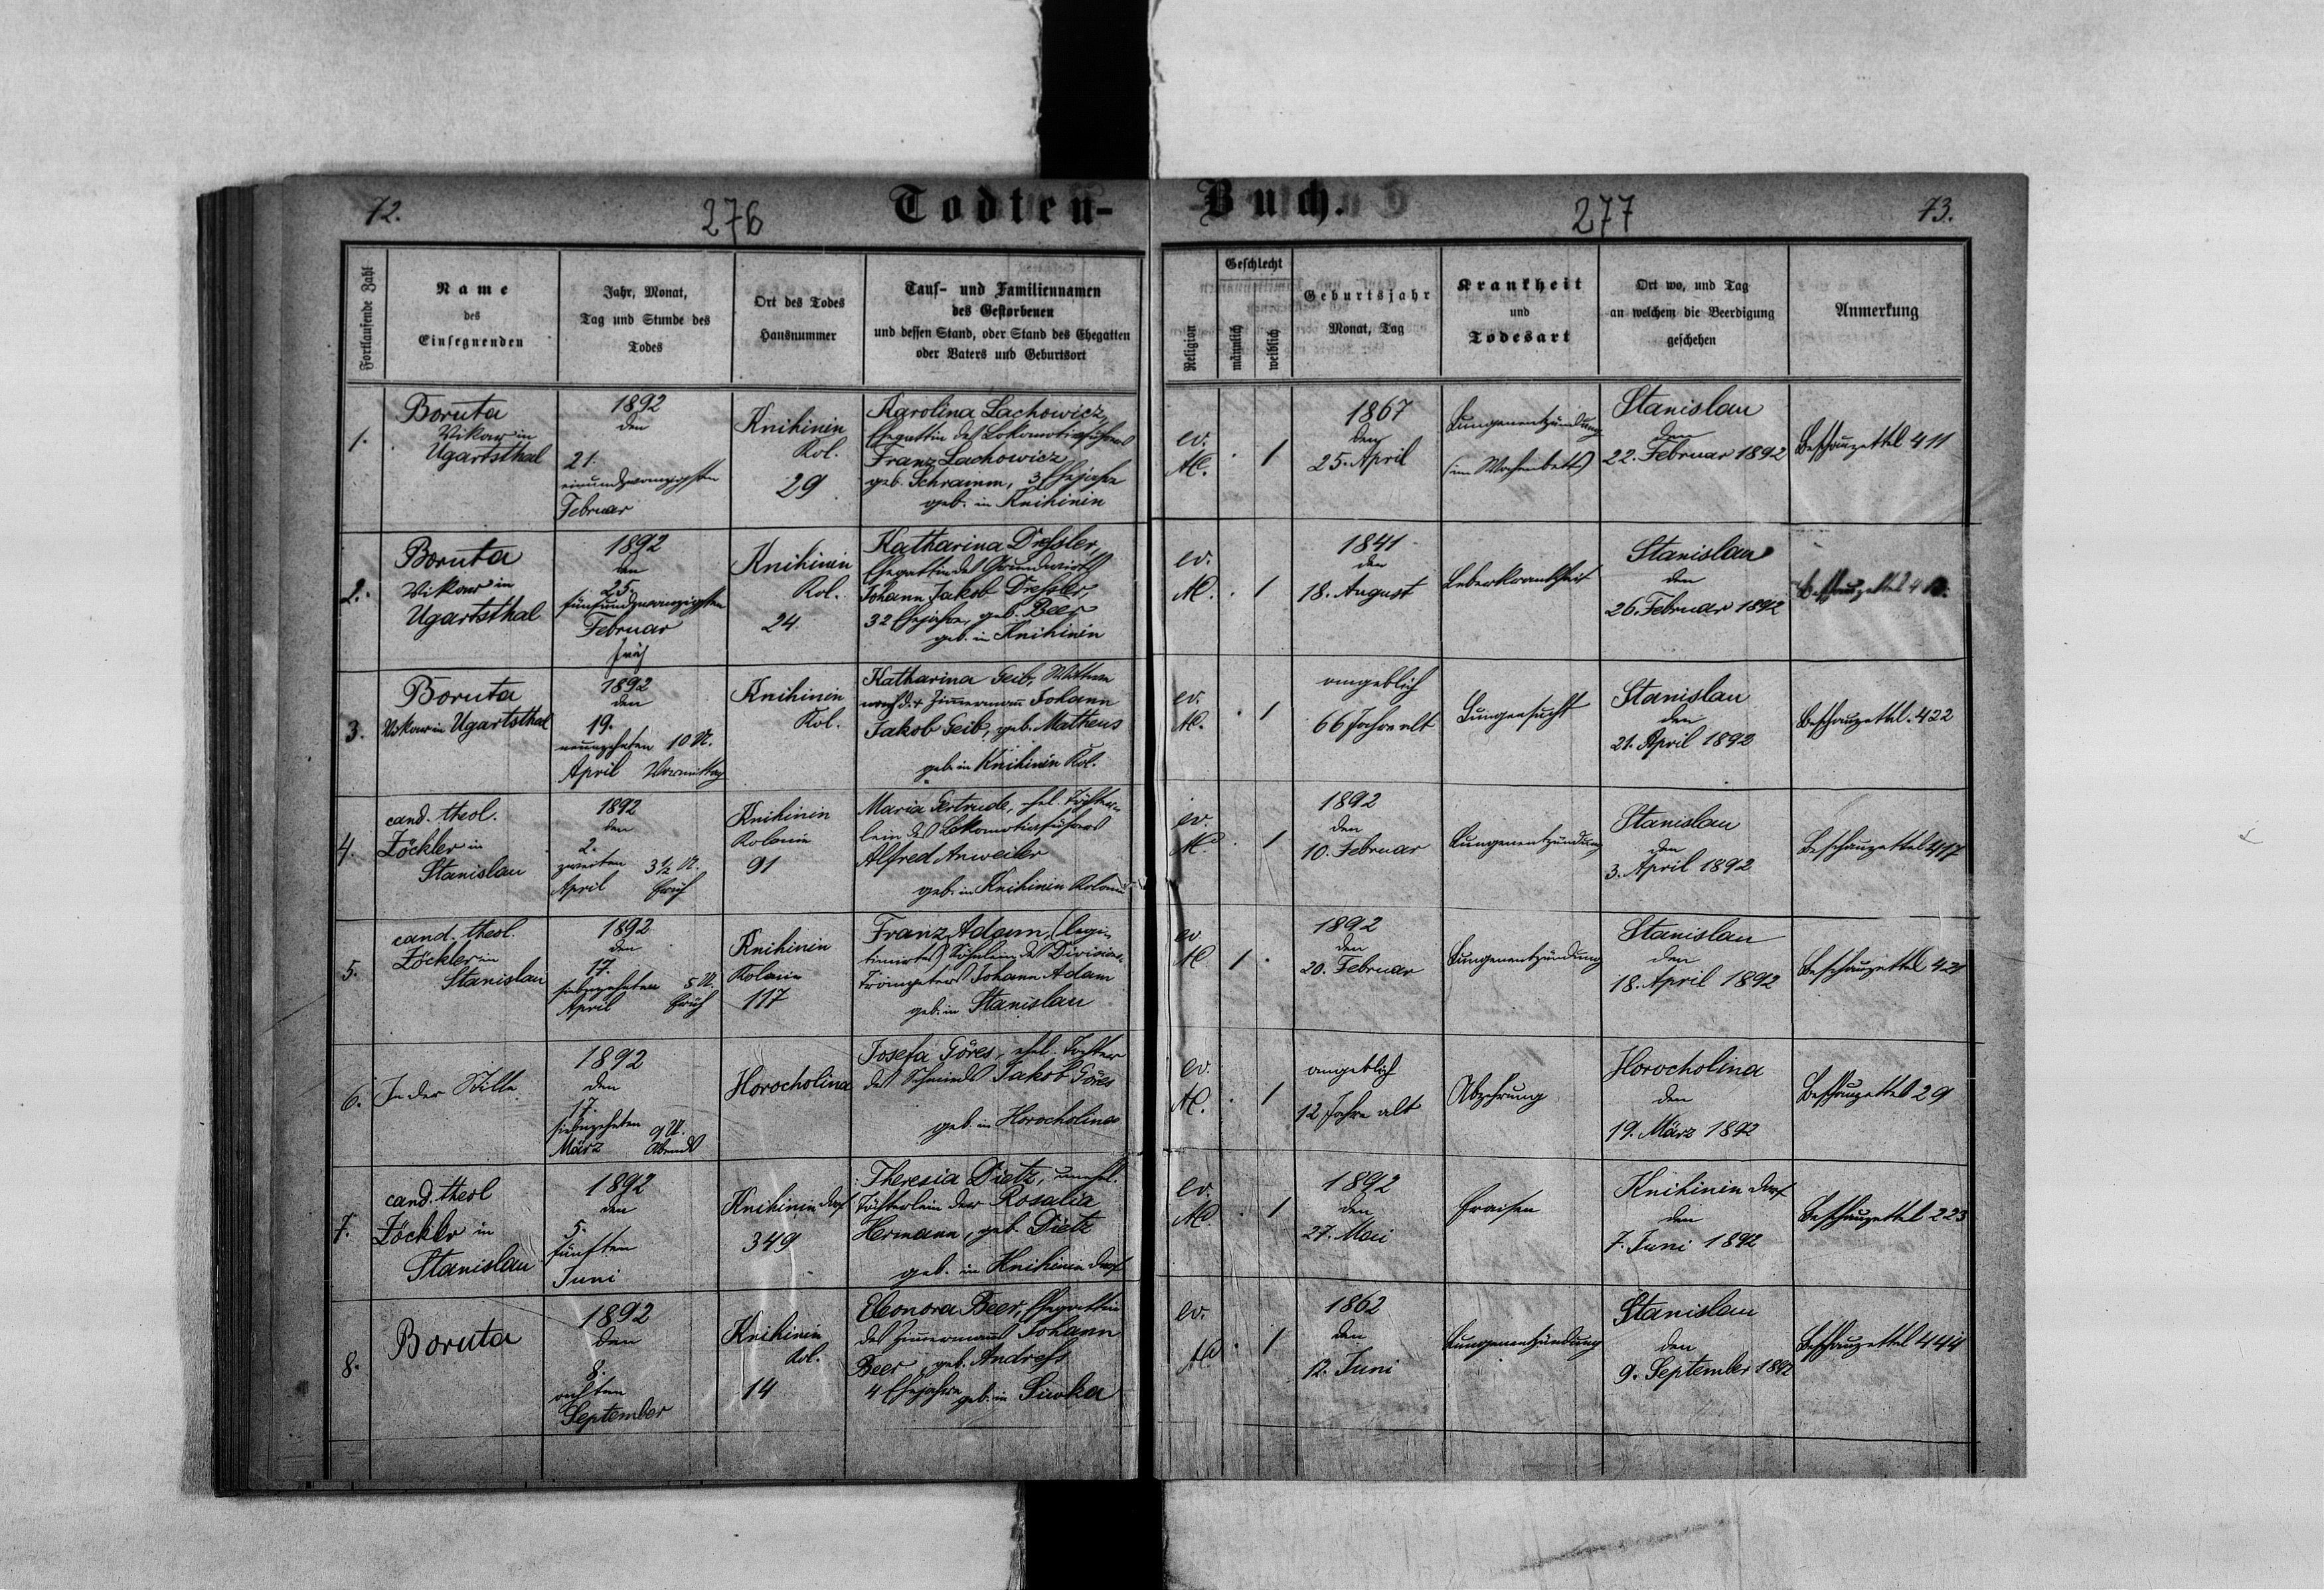 72.
276
Todten-
Buch.
277
73.
Fortlaufende Zahl
Name
des
Einsegnenden
Jahr, Monat,
Tag und Stunde des
Todes
Ort des Todes
Hausnummer
Tauf- und Familiennamen
des Gestorbenen
und dessen Stand, oder Stand des Ehegatten
oder Vaters und Geburtsort
Religion
Geschlecht
männlich
weiblich
Geburtsjahr
Monat, Tag
Krankheit
und
Todesart
Ort wo, und Tag
an welchem die Beerdigung
geschehen
Anmerkung
1.
Boruta
Vikar in
Ugartsthal
1892
den
21.
einundzwanzigsten
Februar
Knihinin
Kol.
29
Karolina Lachowicz,
Ehegattin des Lokomotivführers
Franz Lachowicz
geb. Schramm, 3 Ehejahre
geb. in Knihinin
ev.
A.C.
1
1867
den
25. April
Lungenentzündung
(im Wochenbett)
Stanislau
den
22. Februar 1892
Beschauzettel 411
2.
Boruta
Vikar in
Ugartsthal
1892
den
25.
fünfundzwanzigsten
Februar
früh
Knihinin
Kol.
24
Katharina Dressler,
Ehegattin des Grundwirths
Johann Jakob Dressler,
32 Ehejahre, geb. Beer
geb. in Knihinin
ev.
A.C.
1
1841
den
18. August
Leberkrankheit
Stanislau
den
26. Februar 1892
Beschauzettel
3.
Boruta
Vikar in Ugartsthal
1892
den
19.
neunzehnten 10 U.
April Vormittag
Knihinin
Kol.
Katharina Geib, Wittwe
nach d. + Zimmermann Johann
Jakob Geib, geb. Matheus
geb. in Knihinin Kol.
ev.
A.C.
1
angeblich
66 Jahre alt
Lungensucht
Stanislau
den
21. April 1892
Beschauzettel 422
4.
cand. theol.
Zöckler in
Stanislau
1892
den
2.
zweiten 3½ U.
April früh
Knihinin
Kolonie
91
Maria Gertrude, ehel. Töchter-
lein des Lokomotivführers
Alfred Anweiler
geb. in Knihinin Kolonie
ev.
A.C.
1
1892
den
10. Februar
Lungenentzündung
Stanislau
den
3. April 1892
Beschauzettel 417
5.
cand. theol.
Zöckler in
Stanislau
1892
den
17.
siebzehnten 5 U.
April früh
Knihinin
Kolonie
117
Franz Adam, (legi-
timirtes) Söhnlein des Divisions-
Trompeters Johann Adam
geb. in Stanislau
ev.
A.C.
1
1892
den
20. Februar
Lungenentzündung
Stanislau
den
18. April 1892
Beschauzettel 421
6.
In der Stille
1892
den
17.
siebzehnten 9 U.
März Abends
Horocholina
Josefa Göres, ehel. Tochter
des Schmieds Jakob Göres
geb. in Horocholina
ev.
A.C.
1
angeblich
12 Jahre alt
Abzehrung
Horocholina
den
19. März 1892
Beschauzettel 29
7.
cand. theol
Zöckler in
Stanislau
1892
den
5.
fünften
Juni
Knihinin Dorf
349
Theresia Dietz, unehel.
Töchterlein der Rosalia
Hermann, geb. Dietz
geb. in Knihinin Dorf
ev.
A.C.
1
1892
den
27. Mai
Fraisen
Knihinin Dorf
den
7. Juni 1892
Beschauzettel 223
8.
Boruta
1892
den
8.
achten
September
Knihinin
Kol.
14
Eleonora Beer, Ehegattin
des Zimmermanns Johann
Beer, geb. Andress
4 Ehejahre geb. in Siwka
ev.
A.C.
1
1862
den
12. Juni
Lungenentzündung
Stanislau
den
9. September 1892
Beschauzettel 444